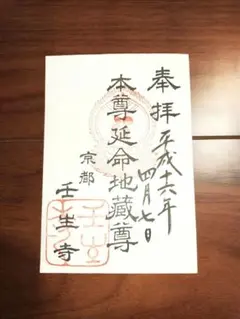 奉拝
平成十六年
四月七日
本尊延命地蔵尊
京都
壬生寺